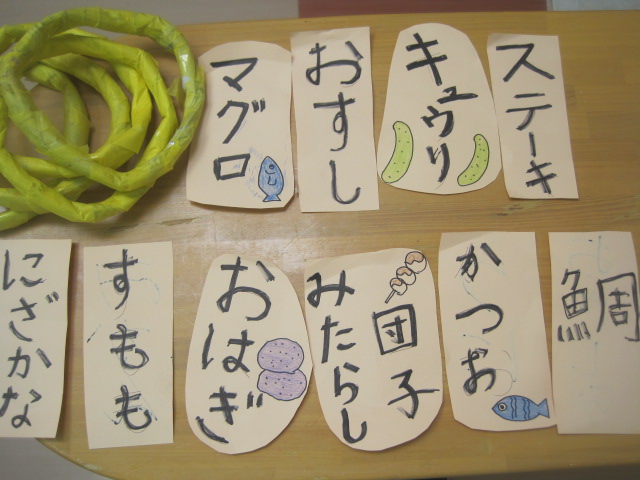 マグロ
おすし
キュウリ
ステーキ
にざかな
すもも
おはぎ
みたらし
団子
かつお
鯛